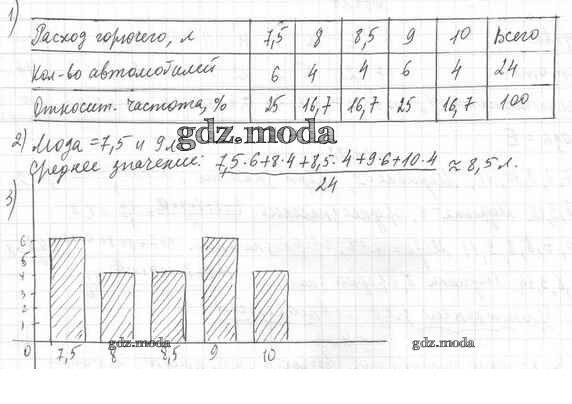 1)
Расход горючего, л 7,5 8 8,5 9 10 Всего
Кол-во автомобилей 6 4 4 6 4 24
Относит. частота, % 25 16,7 16,7 25 16,7 100
2) Мода = 7,5 и 9л
gdz.moda
Среднее значение: 7,5·6+8·4+8,5·4+9·6+10·4 ≈ 8,5л.
24
3)
6
5
4
3
2
1
0 7,5 8 8,5 9 10
gdz.moda gdz.moda